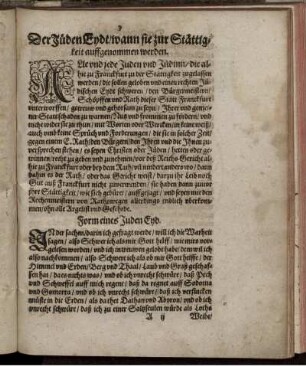 Der Jüden Eydt / wann sie zur Stättig-
keit auffgenommen werden.
Alle vnd jede Juden vnd Jüdinn / die all-
hie zu Franckfurt zu der Stättigkeit zugelassen
werden / die sollen geloben vnd einen rechten Jü-
dischen Eydt schweren / den Bürgermeistern /
Schöpffen vnd Rath dieser Statt Franckfurt
vnterworffen / getreuw vnd gehorsam zu seyn / Ihrer vnd gemei-
ner Statt schaden zu warnen / Nutz vnd frommen zu fördern / vnd
nicht wider sie zu thun / mit Worten oder Wercken / in keine weiß /
auch vmb keine Sprüch vnd Forderungen / die sie in solcher Zeit /
gegen einem E. Rath / den Bürgern / den Ihren vnd die Ihnen zu-
versprechen stehen / es seyen Christen oder Juden / hetten oder ge-
wünnen / recht zu geben vnd zu nehmen / vor deß Reichs Gericht all-
hie zu Franckfurt oder bey dem Rath /
dahin es der Rath / oder das Gericht weist / darzu ihr Leid noch
Gut auß Franckfurt nicht zuwenden / sie haben dann zuvor
ihre Stättigkeit / wie sich gebürt / auffgesagt / vnd seyen mit den
Rechenmeistern von Rathswegen allerdings redlich vberkom-
men / ohn alle Argelist vnd Gefehrde.
Form eines Juden Eyd.
IN der sachen / darin ich gefragt werde / will ich die Warheit
sagen / also Schwer ich als mir Gott hülff /
also nachkommen / also Schwer ich als ob mir Gott helffe / der
Himmel vnd Erden / Berg vnd Thaal / Laub vnd Graß geschaf-
fen hat / da zuvor nichts was / vnd ob ich vnrecht schwür / daß Pech
vnd Schweffel auff mich regene / das da regnet auff Sodoma
vnd Gomorra / vnd ob ich vnrecht schwür / daß ich versincken
müste in die Erden / als da thet Dathan vnd Abyron / vnd ob ich
vnrecht schwür / daß ich zu einer Saltzseulen würde als Loths
A ij Weibe /